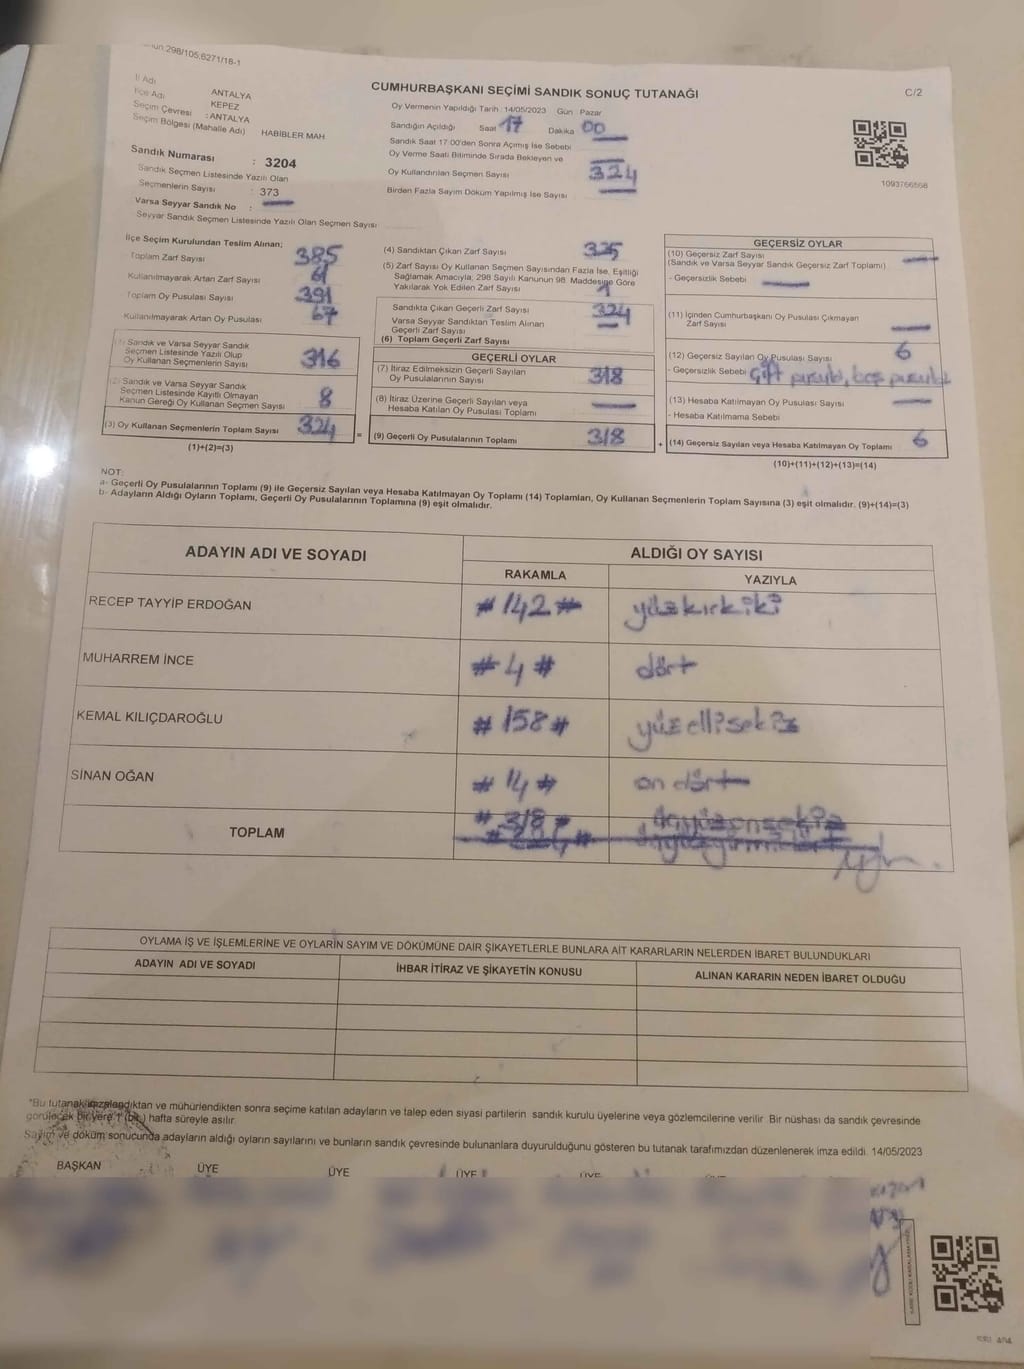 298/105;6271/18-1
CUMHURBAŞKANI SEÇİMİ SANDIK SONUÇ TUTANAĞI
C/2
İl Adı ANTALYA
İlçe Adı KEPEZ
Seçim Çevresi : ANTALYA
Seçim Bölgesi (Mahalle Adı) HABİBLER MAH
Sandık Numarası : 3204
Sandık Seçmen Listesinde Yazılı Olan
Seçmenlerin Sayısı : 373
Varsa Seyyar Sandık No :
Seyyar Sandık Seçmen Listesinde Yazılı Olan Seçmen Sayısı
Oy Vermenin Yapıldığı Tarih 14/05/2023 Gün Pazar
Sandığın Açıldığı Saat 17 Dakika 00
Sandık Saat 17:00'den Sonra Açımış İse Sebebi
Oy Verme Saati Bitiminde Sırada Bekleyen ve
Oy Kullandırılan Seçmen Sayısı 324
Birden Fazla Sayım Döküm Yapılmış İse Sayısı
1093766568
İlçe Seçim Kurulundan Teslim Alınan;
Toplam Zarf Sayısı 385
Kullanılmayarak Artan Zarf Sayısı 61
Toplam Oy Pusulası Sayısı 391
Kullanılmayarak Artan Oy Pusulası 67
(1) Sandık ve Varsa Seyyar Sandık
Seçmen Listesinde Yazılı Olup
Oy Kullanan Seçmenlerin Sayısı 316
(2) Sandık ve Varsa Seyyar Sandık
Seçmen Listesinde Kayıtlı Olmayan
Kanun Gereği Oy Kullanan Seçmen Sayısı 8
(3) Oy Kullanan Seçmenlerin Toplam Sayısı 324
(1)+(2)=(3)
(4) Sandıktan Çıkan Zarf Sayısı 325
(5) Zarf Sayısı Oy Kullanan Seçmen Sayısından Fazla İse, Eşitliği
Sağlamak Amacıyla; 298 Sayılı Kanunun 98. Maddesine Göre
Yakılarak Yok Edilen Zarf Sayısı 1
Sandıkta Çıkan Geçerli Zarf Sayısı 324
Varsa Seyyar Sandıktan Teslim Alınan
Geçerli Zarf Sayısı
(6) Toplam Geçerli Zarf Sayısı
GEÇERLİ OYLAR
(7) İtiraz Edilmeksizin Geçerli Sayılan
Oy Pusulalarının Sayısı 318
(8) İtiraz Üzerine Geçerli Sayılan veya
Hesaba Katılan Oy Pusulası Toplamı
= (9) Geçerli Oy Pusulalarının Toplamı 318 +
GEÇERSİZ OYLAR
(10) Geçersiz Zarf Sayısı
(Sandık ve Varsa Seyyar Sandık Geçersiz Zarf Toplamı)
- Geçersizlik Sebebi
(11) İçinden Cumhurbaşkanı Oy Pusulası Çıkmayan
Zarf Sayısı
(12) Geçersiz Sayılan Oy Pusulası Sayısı 6
- Geçersizlik Sebebi Çift pusula, boş pusula
(13) Hesaba Katılmayan Oy Pusulası Sayısı
- Hesaba Katılmama Sebebi
(14) Geçersiz Sayılan veya Hesaba Katılmayan Oy Toplamı 6
(10)+(11)+(12)+(13)=(14)
NOT:
a- Geçerli Oy Pusulalarının Toplamı (9) ile Geçersiz Sayılan veya Hesaba Katılmayan Oy Toplamı (14) Toplamları, Oy Kullanan Seçmenlerin Toplam Sayısına (3) eşit olmalıdır. (9)+(14)=(3)
b- Adayların Aldığı Oyların Toplamı, Geçerli Oy Pusulalarının Toplamına (9) eşit olmalıdır.
ADAYIN ADI VE SOYADI ALDIĞI OY SAYISI
RAKAMLA YAZIYLA
RECEP TAYYİP ERDOĞAN #142# yüzkırkiki
MUHARREM İNCE #4# dört
KEMAL KILIÇDAROĞLU #158# yüzellisekiz
SİNAN OĞAN #14# on dört
TOPLAM #318# üçyüzonsekiz
OYLAMA İŞ VE İŞLEMLERİNE VE OYLARIN SAYIM VE DÖKÜMÜNE DAİR ŞİKAYETLERLE BUNLARA AİT KARARLARIN NELERDEN İBARET BULUNDUKLARI
ADAYIN ADI VE SOYADI İHBAR İTİRAZ VE ŞİKAYETİN KONUSU ALINAN KARARIN NEDEN İBARET OLDUĞU
*Bu tutanak imzalandıktan ve mühürlendikten sonra seçime katılan adayların ve talep eden siyasi partilerin sandık kurulu üyelerine veya gözlemcilerine verilir. Bir nüshası da sandık çevresinde
görülecek bir yere 1 (bir) hafta süreyle asılır.
Sayım ve döküm sonucunda adayların aldığı oyların sayılarını ve bunların sandık çevresinde bulunanlara duyurulduğunu gösteren bu tutanak tarafımızdan düzenlenerek imza edildi. 14/05/2023
BAŞKAN ÜYE ÜYE ÜYE ÜYE